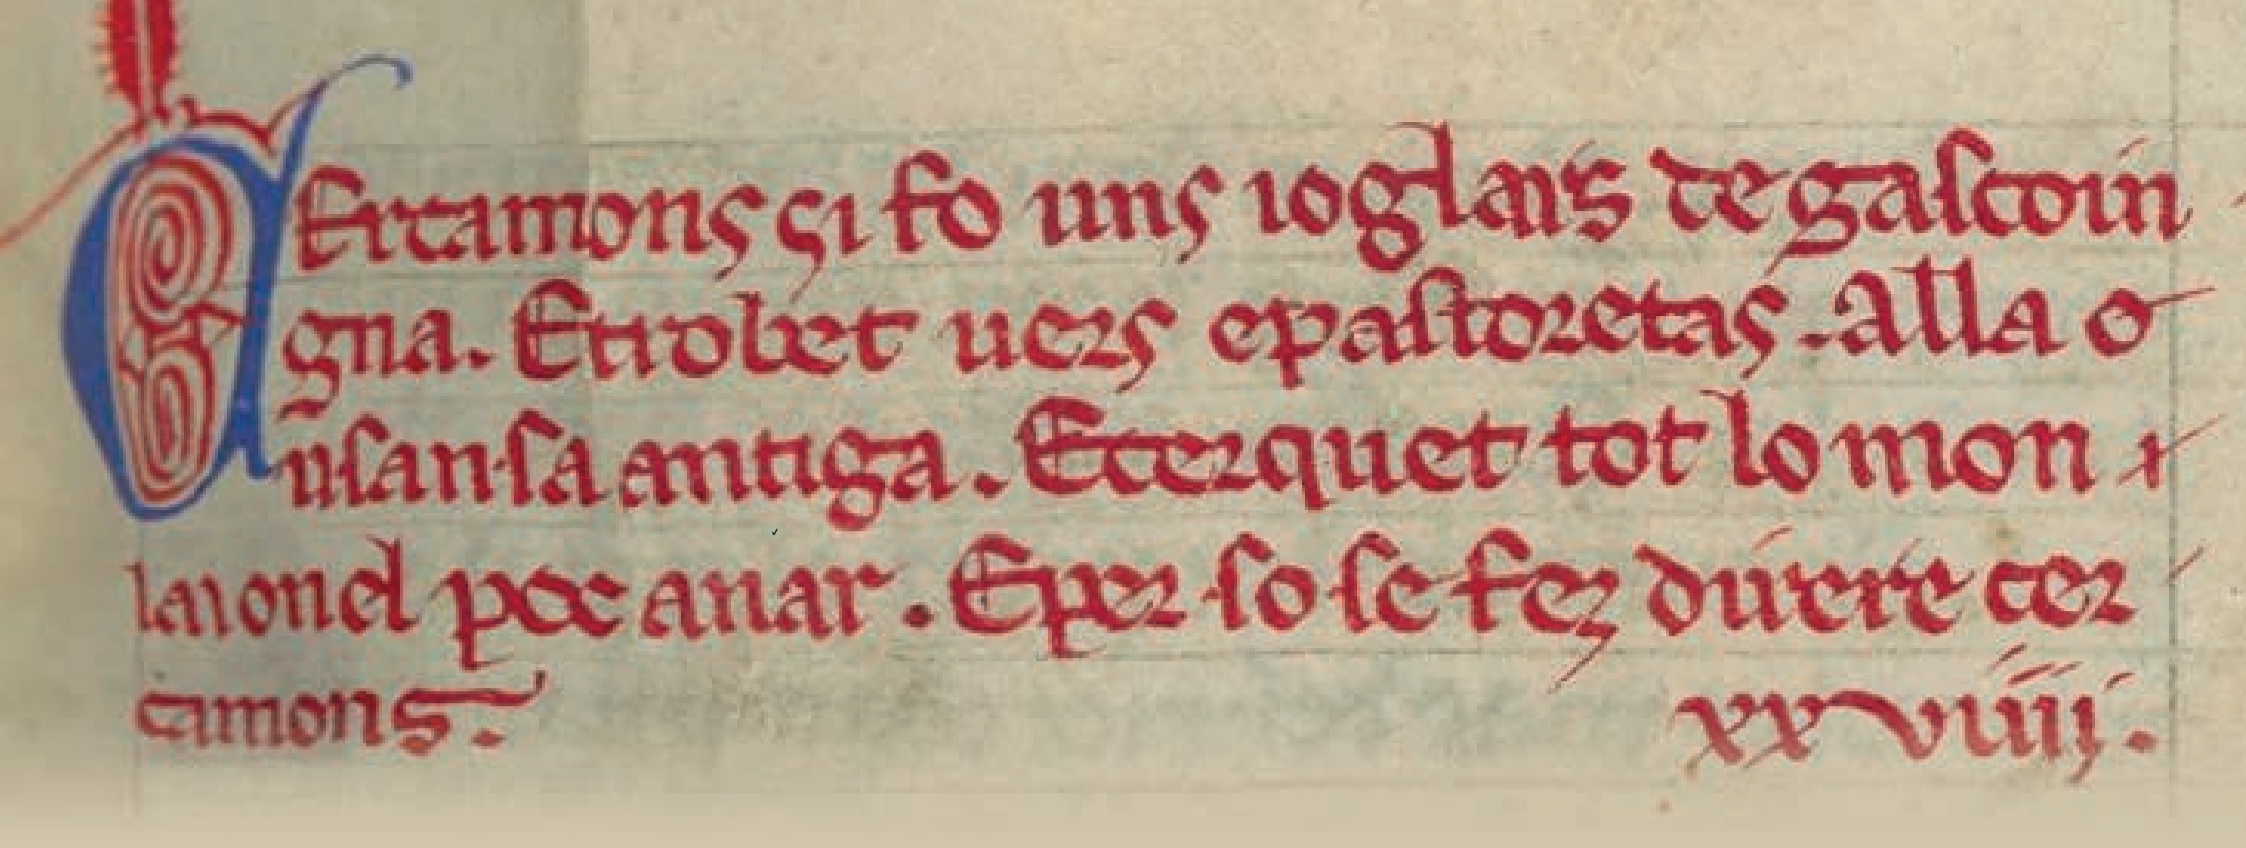 CErcamons si fo uns ioglars de gascoin
gna. Etrobet uers epastoretas. Alla o
usansa antiga. Ecerquet tot lo mon +
lai onel poc anar. Eper so se fez dicere cer
camons. xxviiij.